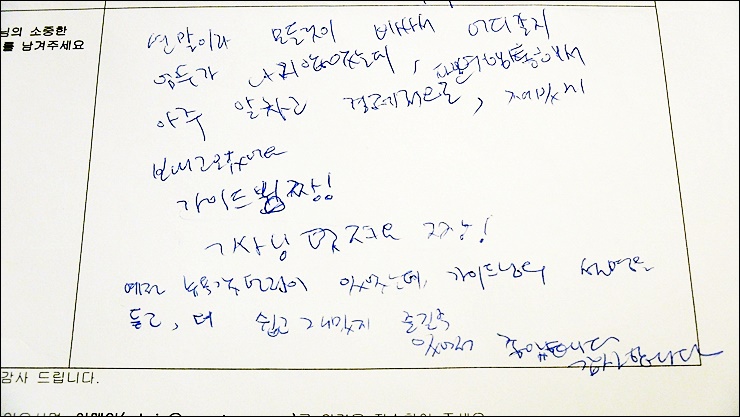 님의 소중한
를 남겨주세요
연말이라 모든것이 바빠서 어디갈지
엄두가 나지않았는데,
아주 알차고 경제적으로, 재밌게
보내고 왔어요
가이드님 짱!
기사님 멋져요 짱!
예전 뉴욕 있었는데, 가이드님의 설명을
듣고, 더 쉽고 재밌게 즐길수
있어서 좋았습니다
감사합니다
감사 드립니다.